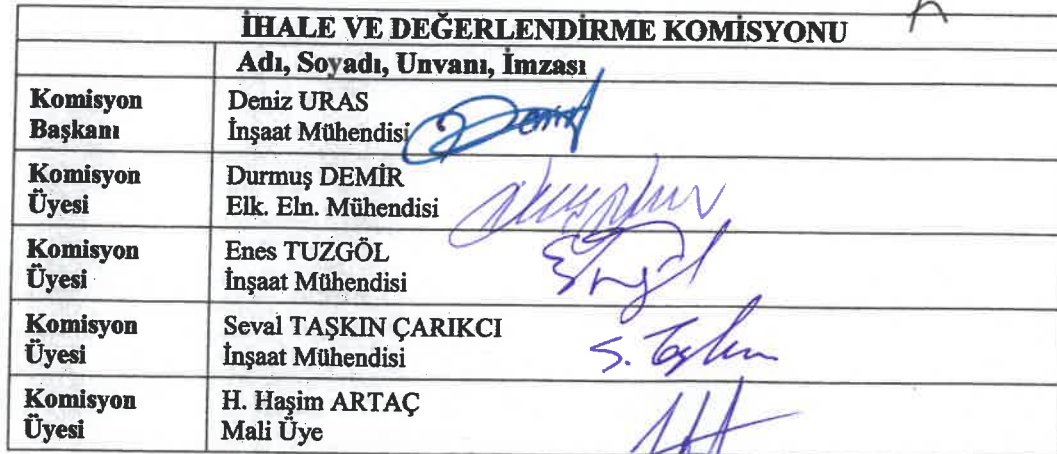 İHALE VE DEĞERLENDİRME KOMİSYONU
Adı, Soyadı, Unvanı, İmzası
Komisyon Başkanı
Deniz URAS
İnşaat Mühendisi
Komisyon Üyesi
Durmuş DEMİR
Elk. Eln. Mühendisi
Komisyon Üyesi
Enes TUZGÖL
İnşaat Mühendisi
Komisyon Üyesi
Seval TAŞKIN ÇARIKCI
İnşaat Mühendisi
Komisyon Üyesi
H. Haşim ARTAÇ
Mali Üye